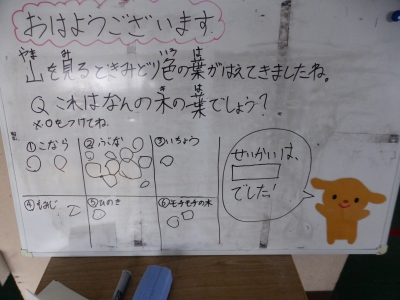 おはようございます
山を見るときみどり色の葉がはえてきましたね。
やま み いろ は
Q これはなんの木の葉でしょう?
き は
※○をつけてね。
①こなら ②ぶな ③いちょう
④もみじ ⑤ひのき ⑥モチモチの木
せいかいは、
でした!